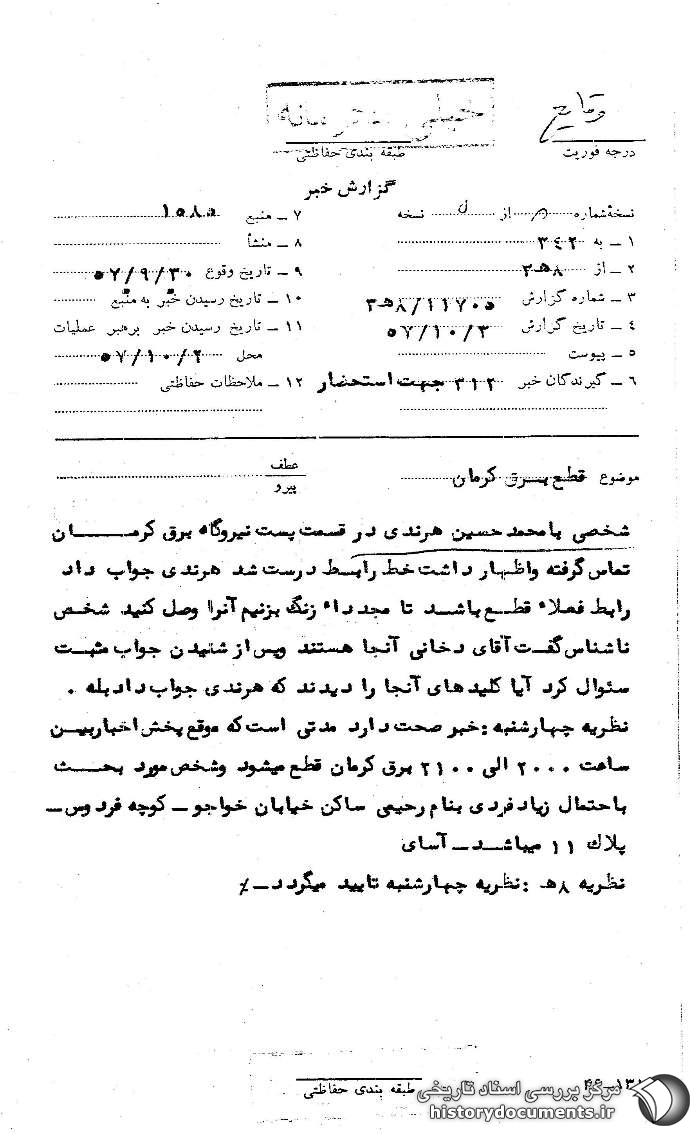 وقایع
خیلی محرمانه
درجه فوریت
طبقه بندی حفاظتی
گزارش خبر
نسخهٔ شماره از نسخه
۱ ـ به ۳۴۲
۲ ـ از ۸هـ۲
۳ ـ شماره گزارش ۳هـ۸/۱۱۷۰۵
۴ ـ تاریخ گزارش ۵۷/۱۰/۳
۵ ـ پیوست
۶ ـ گیرندگان خبر ۳۱۲ جهت استحضار
۷ ـ منبع ۱۵۸۵
۸ ـ منشأ
۹ ـ تاریخ وقوع ۵۷/۹/۳۰
۱۰ ـ تاریخ رسیدن خبر به منبع
۱۱ ـ تاریخ رسیدن خبر برهبر عملیات
محل ۵۷/۱۰/۲
۱۲ ـ ملاحظات حفاظتی
موضوع قطع برق کرمان
عطف
پیرو
شخصی بامحمد حسین هرندی در قسمت پست نیروگاه برق کرمـــان
تماس گرفته واظهار داشت خط رابـط درست شد هرندی جواب داد
رابط فعلاء قطـع باشـد تا مجدداء زنگ بزنیم آنرا وصل کنید شخص
ناشناس گفـت آقای دخانی آنجا هستند وپس از شنیدن جواب مثبت
سئوال کرد آیا کلید های آنجا را دیدند که هرندی جواب داد بله .
نظریه چهارشنبه : خبر صحت دارد مدتی است که موقع پخش اخباربیـن
ساعت ۲۰۰۰ الی ۲۱۰۰ برق کرمان قطع میشود وشخص مورد بحـث
باحتمال زیاد فردی بنام رحیمی ساکن خیابان خواجو ـ کوچه فردوس ـ
پلاك ۱۱ میباشـد ـ آسای
نظریه ۸هـ : نظریه چهارشنبه تایید میگردد ـ ٪
طبقه بندی حفاظتی
مرکز بررسی اسناد تاریخی
historydocuments.ir